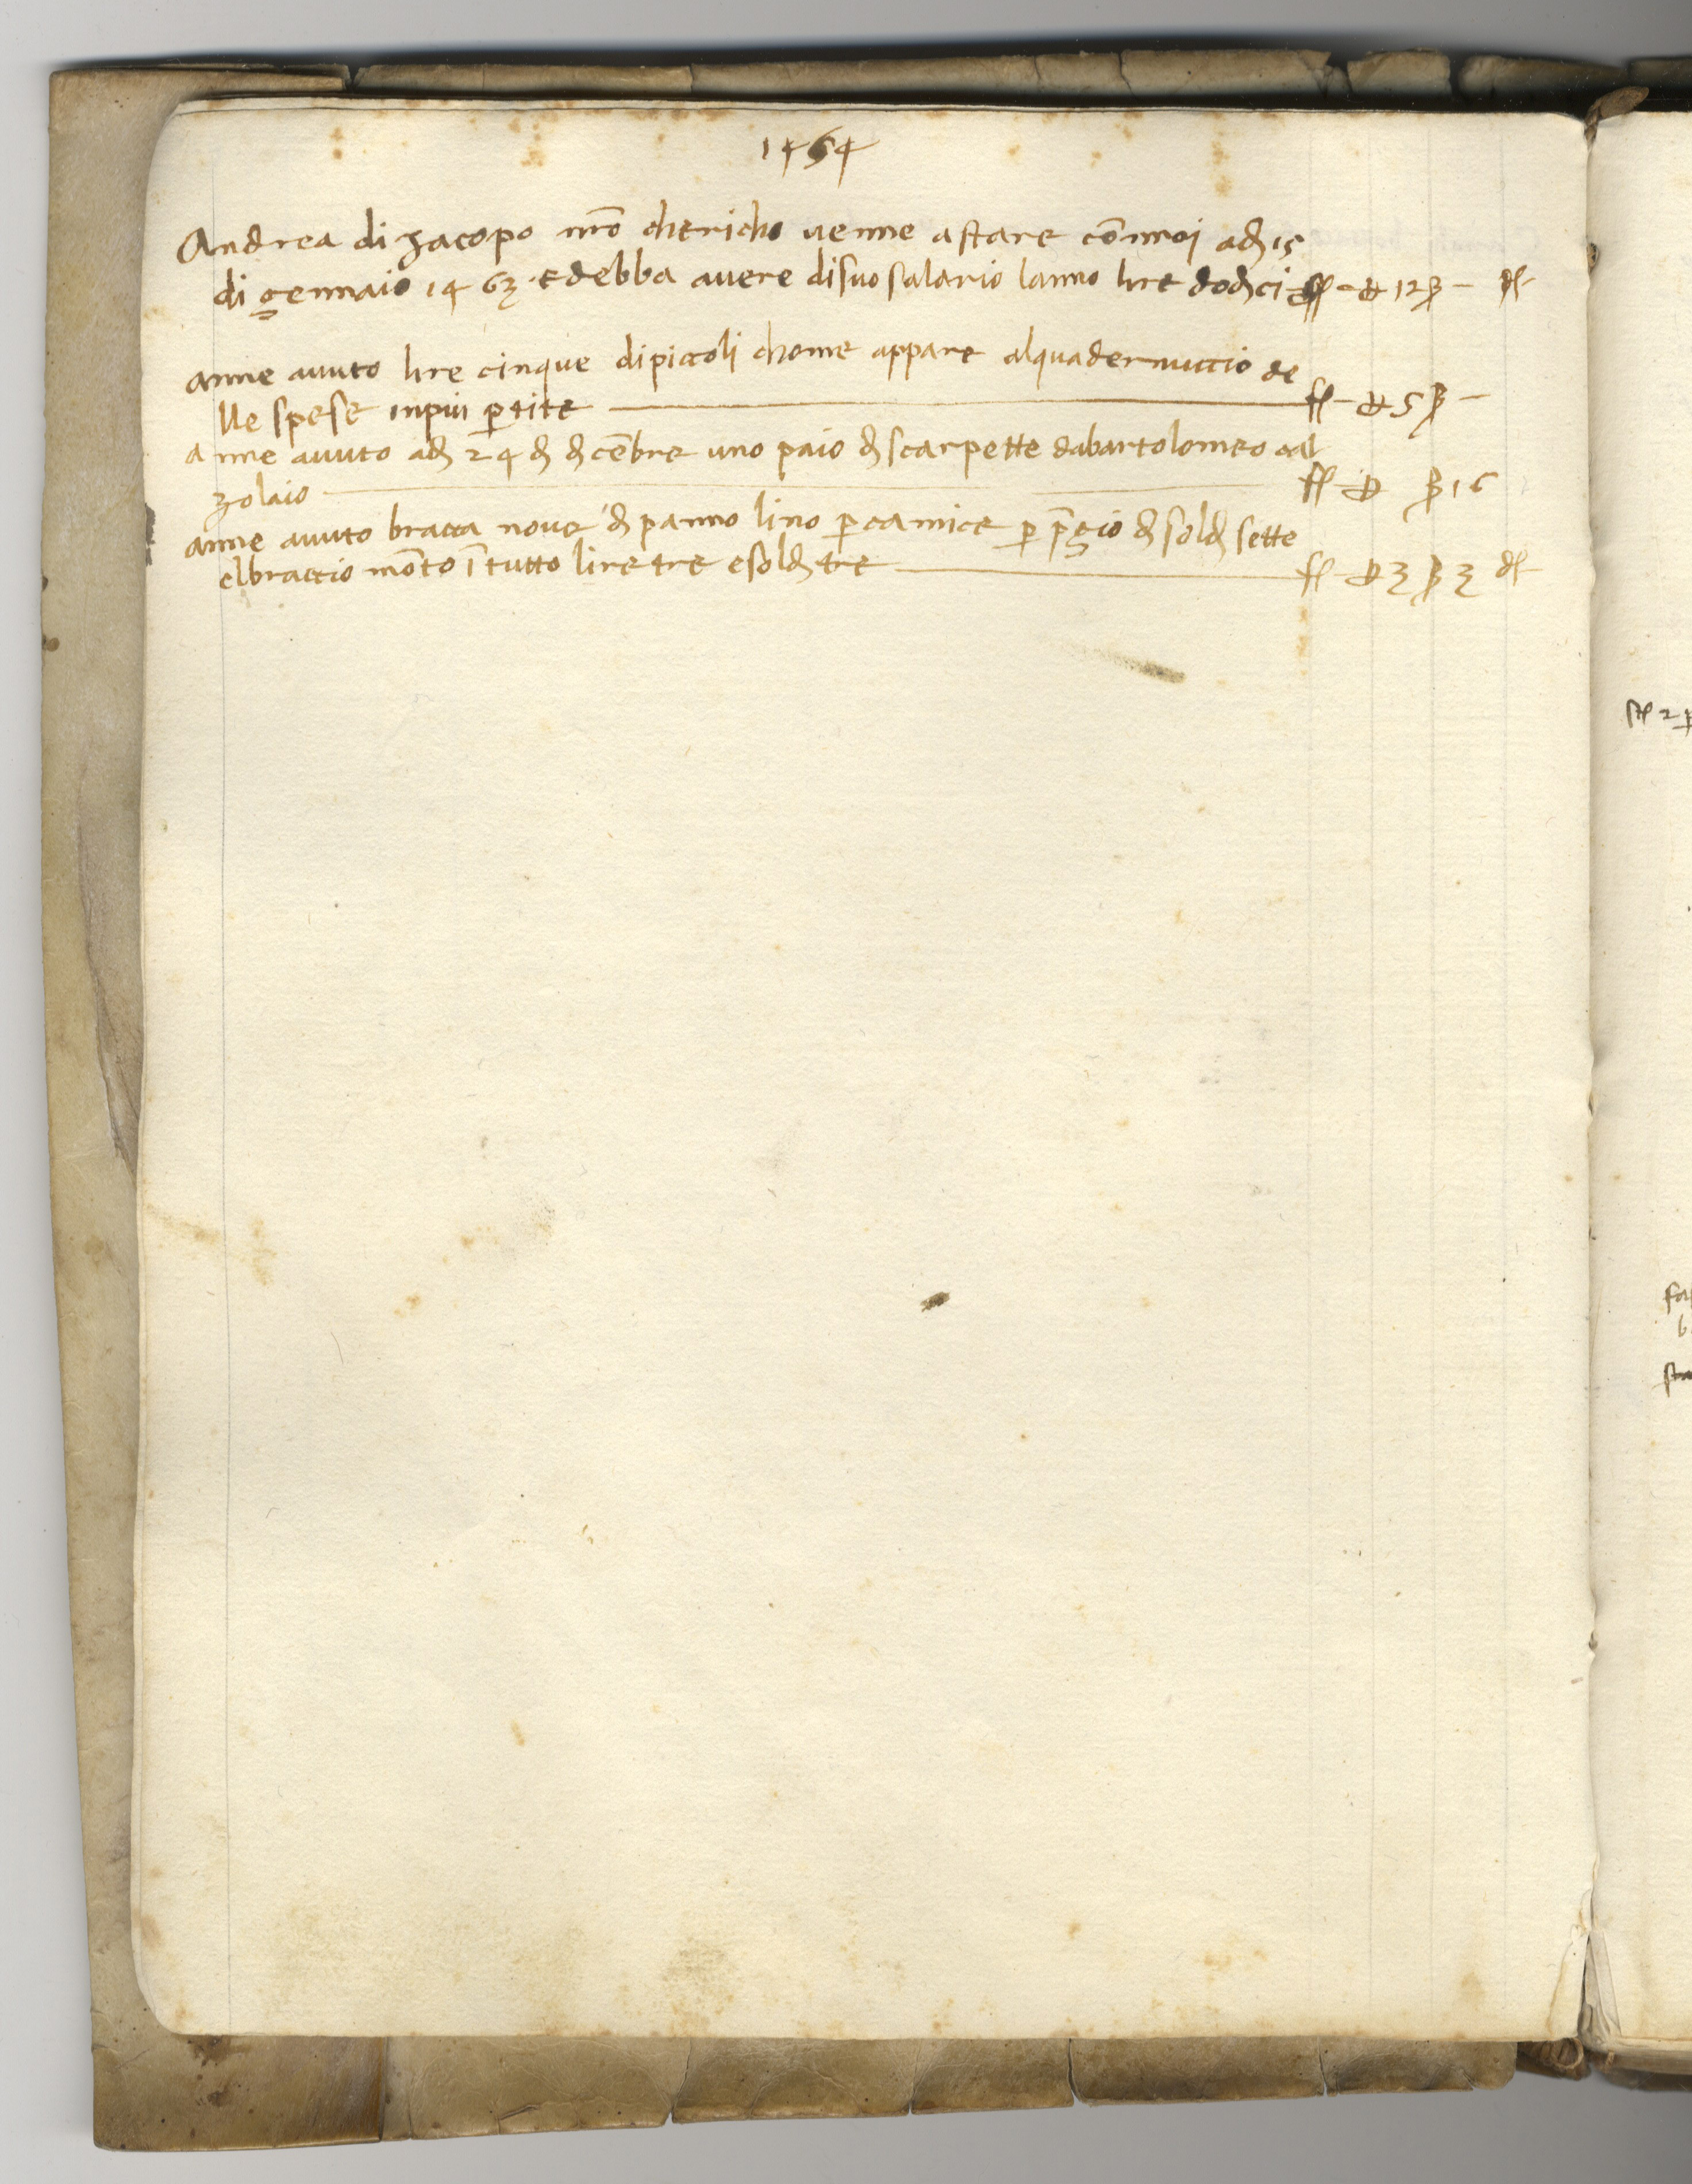 1464
Andrea di Jacopo nr̄o chericho venne a stare cōnnoi adj 15
di gennaio 1463. Edebba avere disuo salario lanno lire dodjci fl - £ 12 ß - dl
anne avuto lire cinque dipiccoli chome appare alquadernuccio de
lle spese inpiu ꝑtite fl - £ 5 ß -
anne avuto adj 24 dj djcēbre uno paio dj scarpette dabartolomeo cal
zolaio fl - £ ß 16
anne avuto bracca nove dj panno lino ꝑcamice ꝑ p̄gio dj soldj sette
elbraccio mōto ī tutto lire tre esoldj tre fl - £ 3 ß 3 dl
fl 2